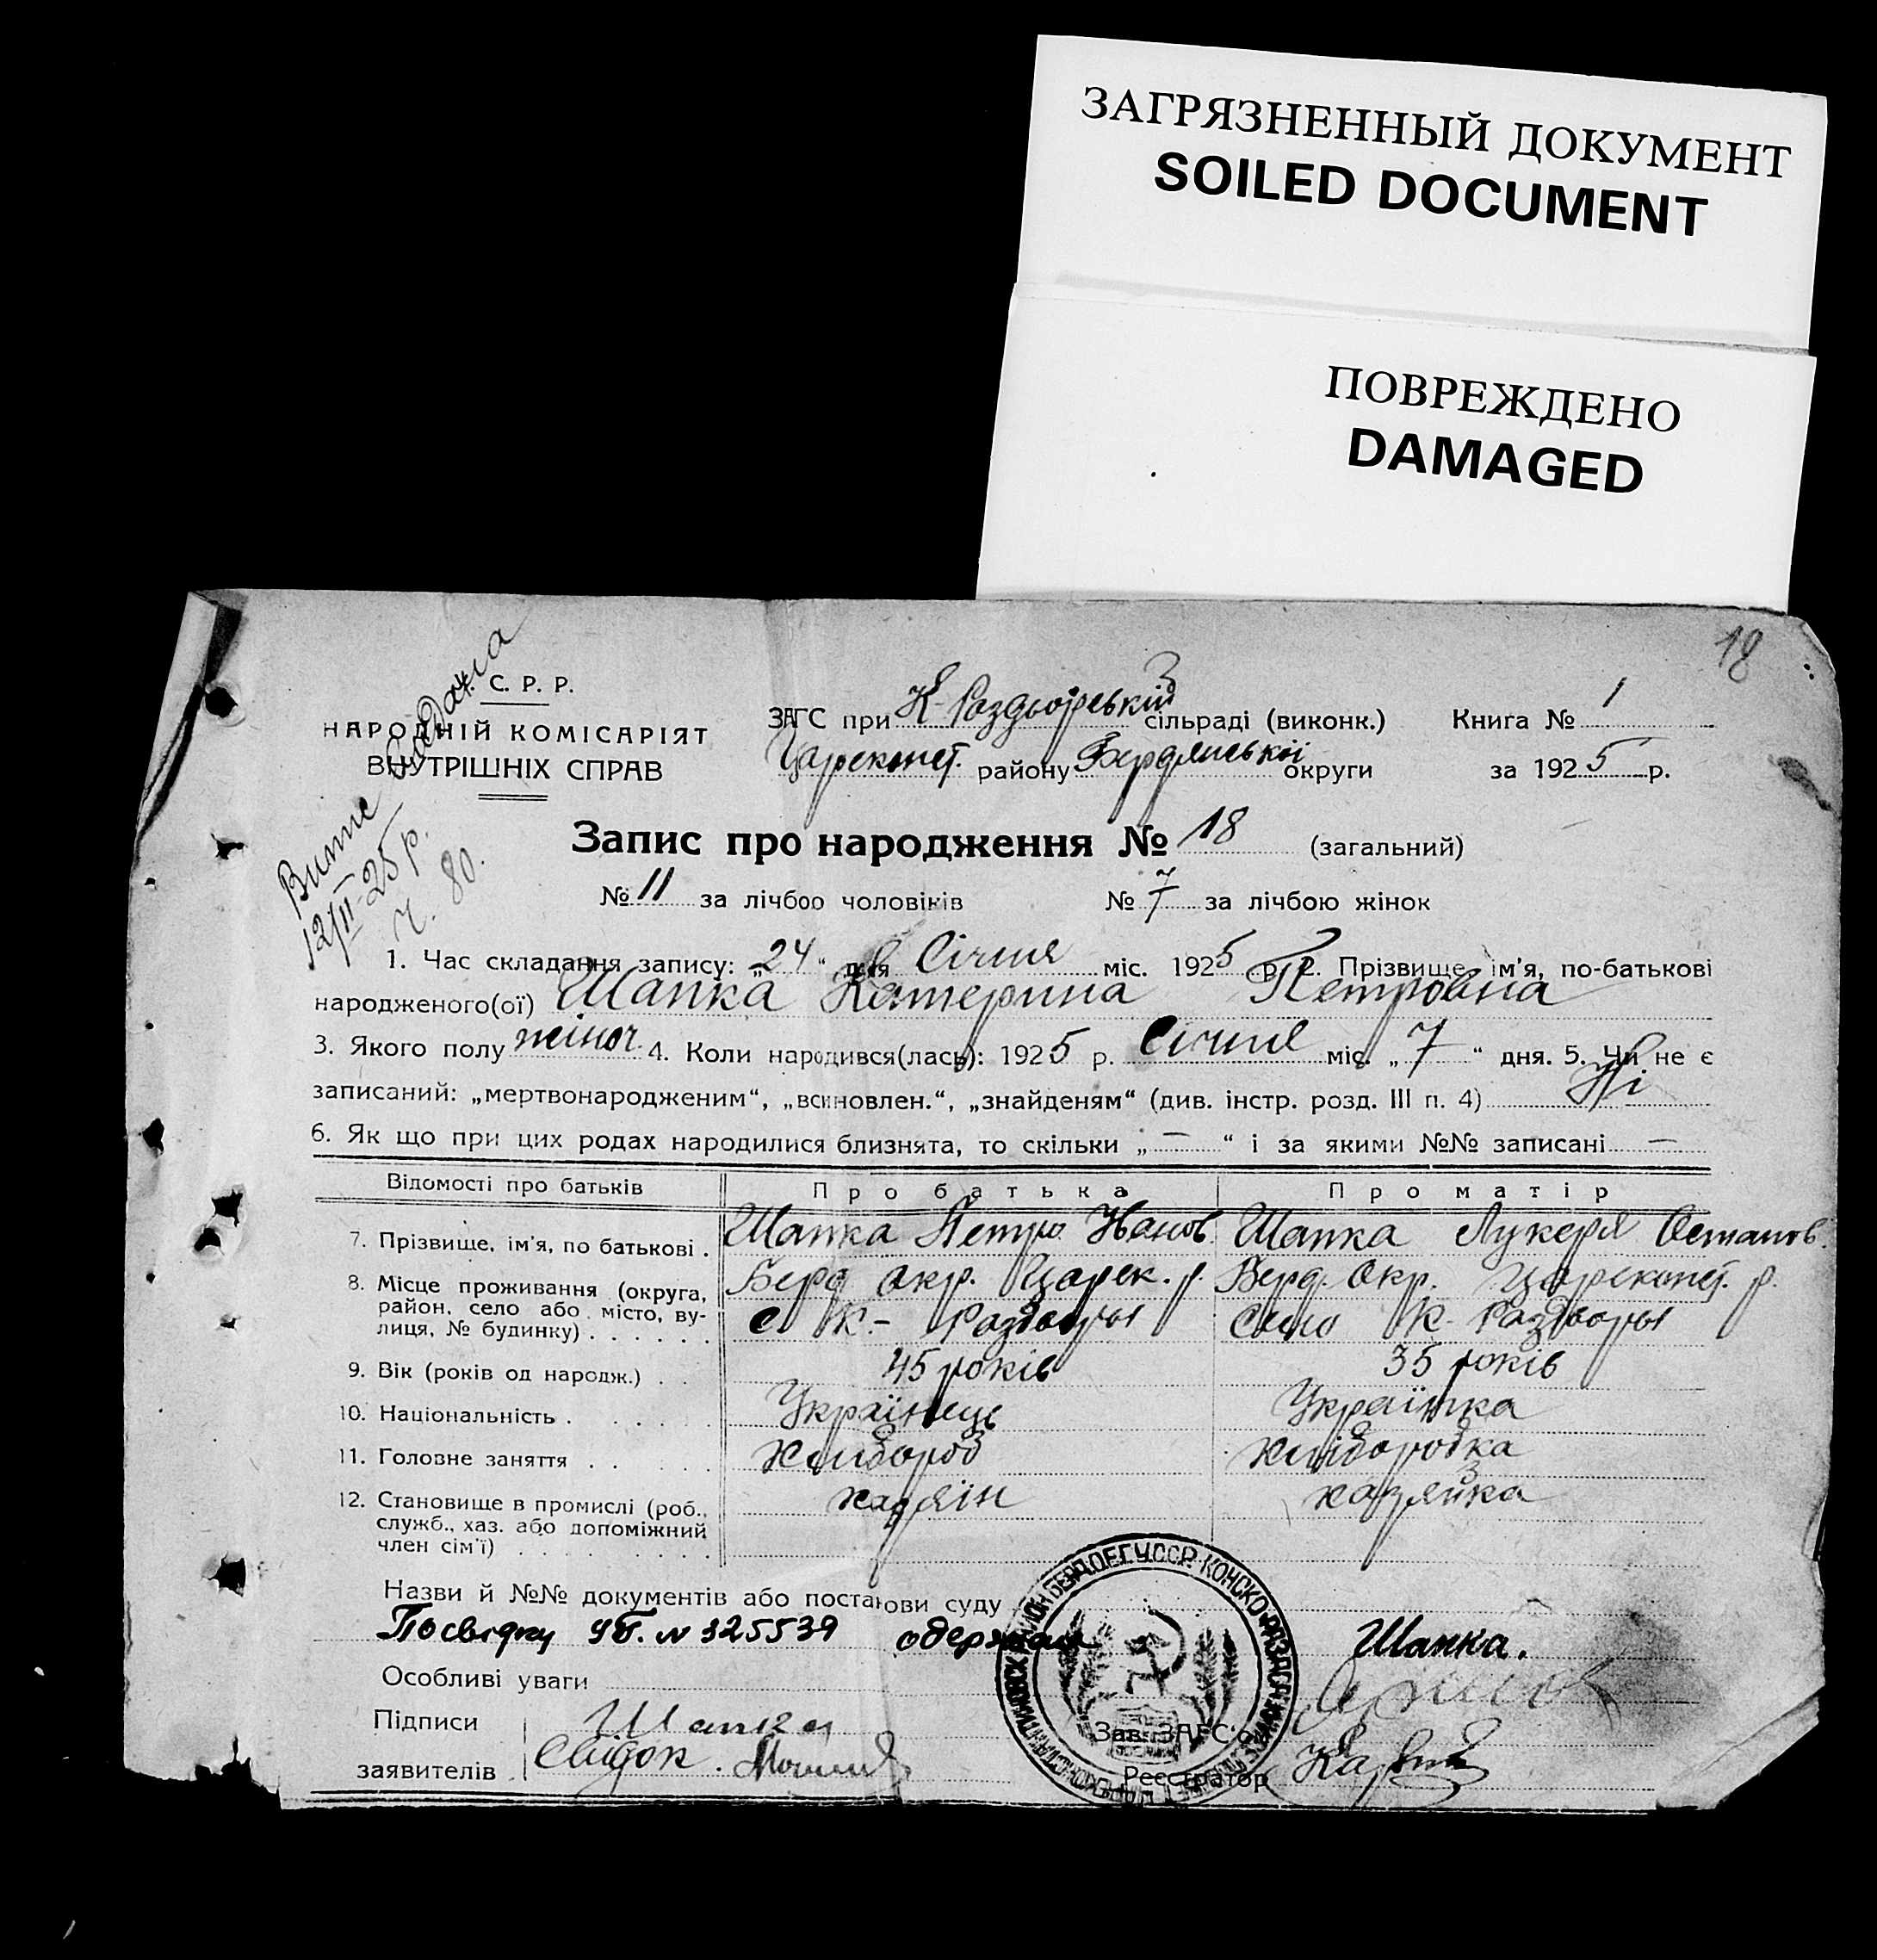 ЗАГРЯЗНЕННЫЙ ДОКУМЕНТ
SOILED DOCUMENT
ПОВРЕЖДЕНО
DAMAGED
18
С. Р. Р.
НАРОДНІЙ КОМІСАРІЯТ
ВНУТРІШНІХ СПРАВ
Витс видана
12/II-25 р.
ч. 80.
ЗАГС при К-Роздьорській сільраді (виконк.) Книга № 1
Царекост. району Бердянської округи за 1925 р.
Запис про народження № 18 (загальний)
№ 11 за лічбою чоловіків № 7 за лічбою жінок
1. Час складання запису: „24“ дня Січня міс. 1925 р. 2. Прізвище, ім'я, по-батькові
народженого(ої) Шапка Катерина Петровна
3. Якого полу жіноч. 4. Коли народився(лась): 1925 р. Січня міс. „7“ дня. 5. Чи не є
записаний: „мертвонародженим“, „всиновлен.“, „знайденям“ (див. інстр. розд. III п. 4) Ні
6. Як що при цих родах народилися близнята, то скільки „—“ і за якими №№ записані —
Відомості про батьків Про батька Про матір
7. Прізвище, ім'я, по батькові . Шапка Петро Иванов. Шапка Лукеря Остапов.
8. Місце проживання (округа, район, село або місто, вулиця, № будинку) Берд окр. Царек. р. Берд. Окр. Царекост. р.
с К.- Роздоры Село К- Роздоры
9. Вік (років од народж.) . . 45 років 35 років
10. Національність . Українець Українка
11. Головне заняття . . Хлібороб Хліборобка
12. Становище в промислі (роб., служб., хаз. або допоміжний член сім'ї) хазяін хазяйка
Назви й №№ документів або постанови суду
Посвідку УБ. № 325539 одержала Шапка.
Особливі уваги
Підписи Шапка
заявителів Свідок.
Зав. ЗАГС'ом
Реєстратор